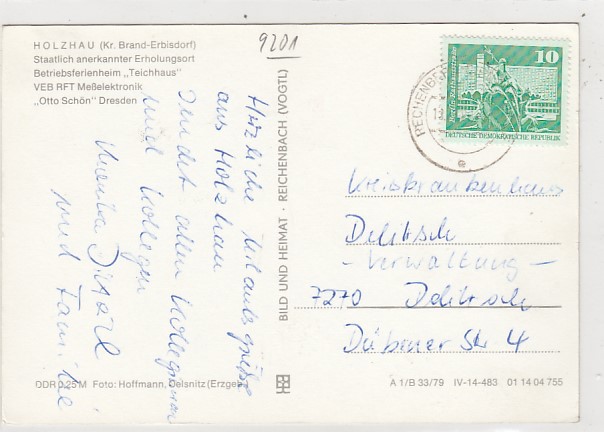 HOLZHAU (Kr. Brand-Erbisdorf)
Staatlich anerkannter Erholungsort
Betriebsferienheim „Teichhaus"
VEB RFT Meßelektronik
„Otto Schön" Dresden
9201
Herzliche Urlaubsgrüße
aus Holzhau
sendet allen Kolleginnen
und Kollegen
Monika
und Familie
BILD UND HEIMAT · REICHENBACH (VOGTL)
10
Berlin · Rathausstraße
DEUTSCHE DEMOKRATISCHE REPUBLIK
RECHENBE
e
Kreiskrankenhaus
Delitzsch
- Verwaltung -
7270 Delitzsch
Dübener Str 4
DDR 0,25 M Foto: Hoffmann, Oelsnitz (Erzgeb.)
A 1/B 33/79 IV-14-483 01 14 04 755